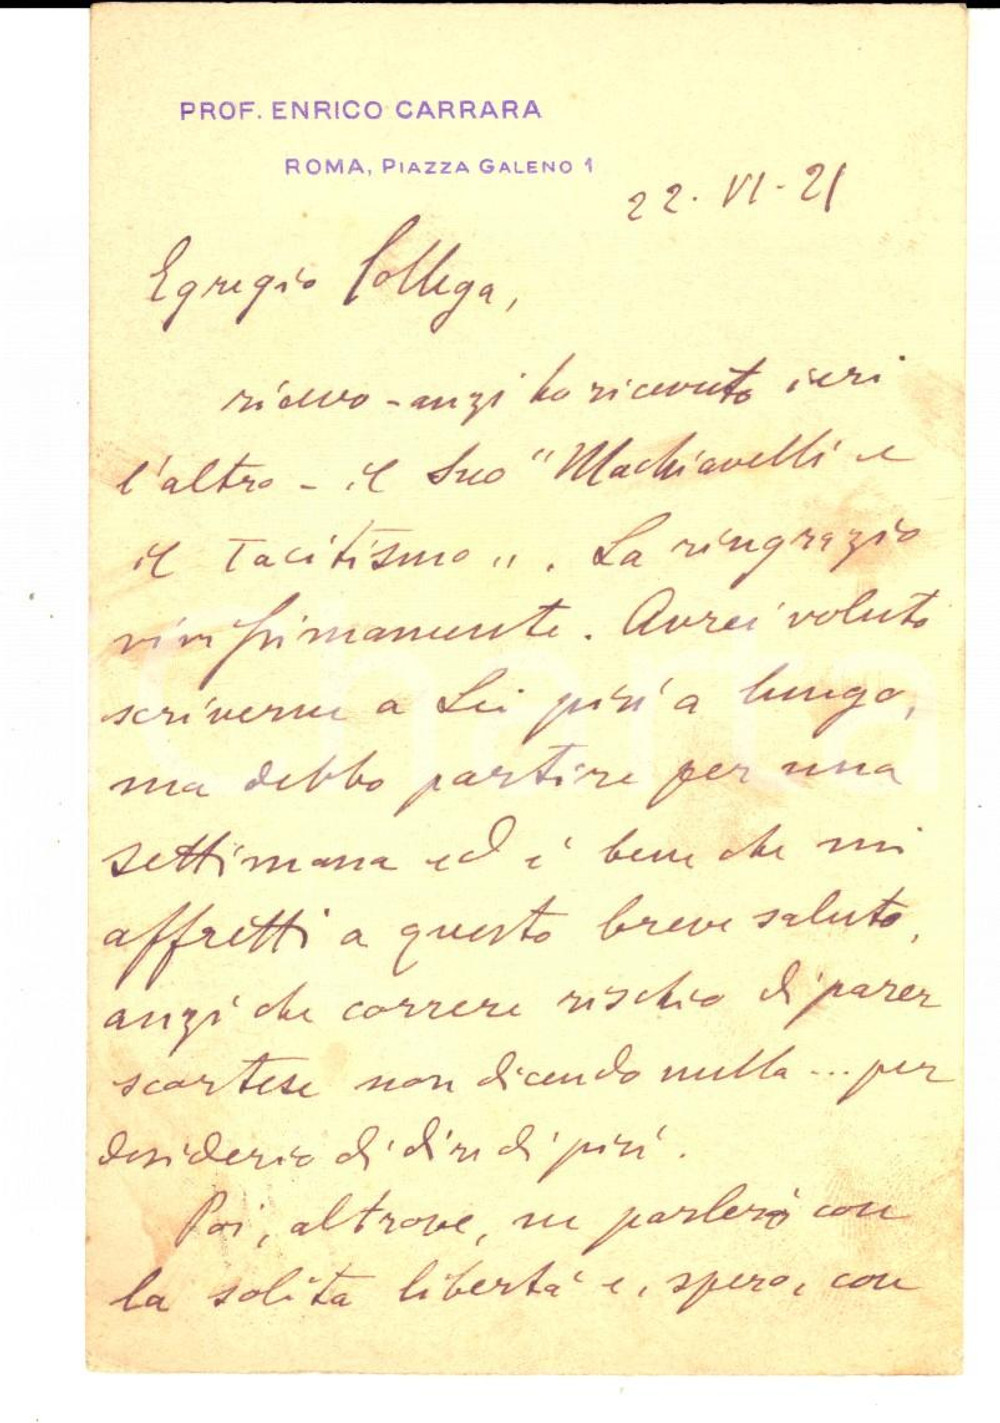 PROF. ENRICO CARRARA
ROMA, PIAZZA GALENO 1
22. VI. - 21
Egregio Collega,
ricevo - anzi ho ricevuto ieri
l'altro - il Suo "Machiavelli e
il Tacitismo". La ringrazio
vivissimamente. Avrei voluto
scriverne a Lei più a lungo,
ma debbo partire per una
settimana ed è bene che mi
affretti a questo breve saluto,
anzi che correre rischio di parer
scortese non dicendo nulla ... per
desiderio di dire di più.
Poi, altrove, ne parlerò con
la solita libertà e, spero, con